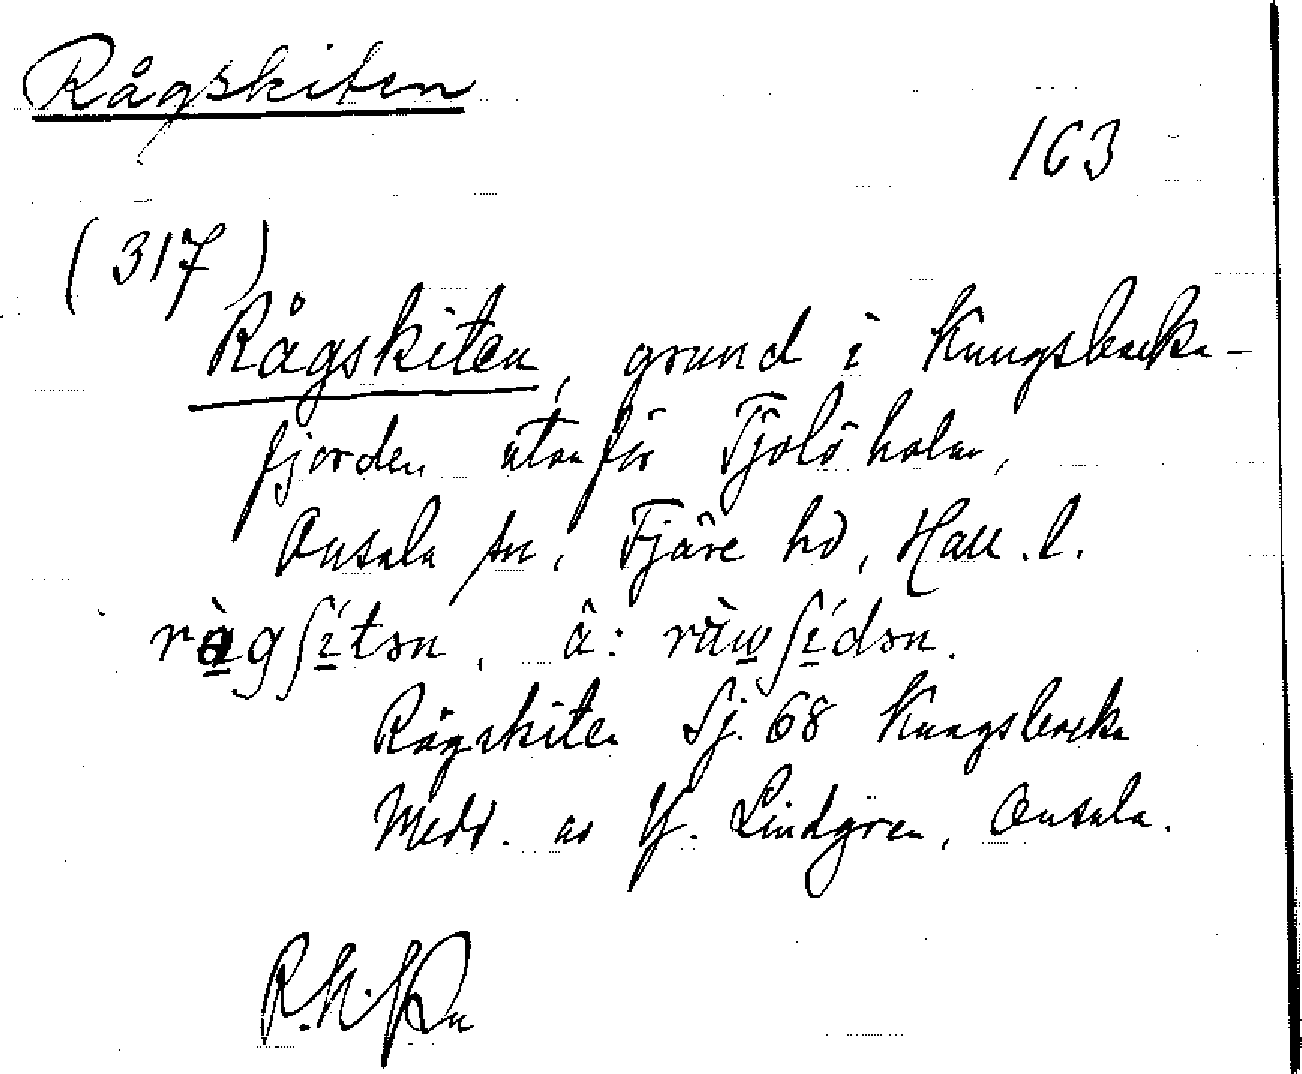 Rågskiten
163
(317)
Rågskiten, grund i Kungsbacka-
fjorden utanför Tjolöholm,
Onsala sn, Fjäre hd, Hall. l.
ràgʃítən, ä: ràwʃídən.
Rågskiten Sj. 68 Kungsbacka
Medd. av Lindgren, Onsala.